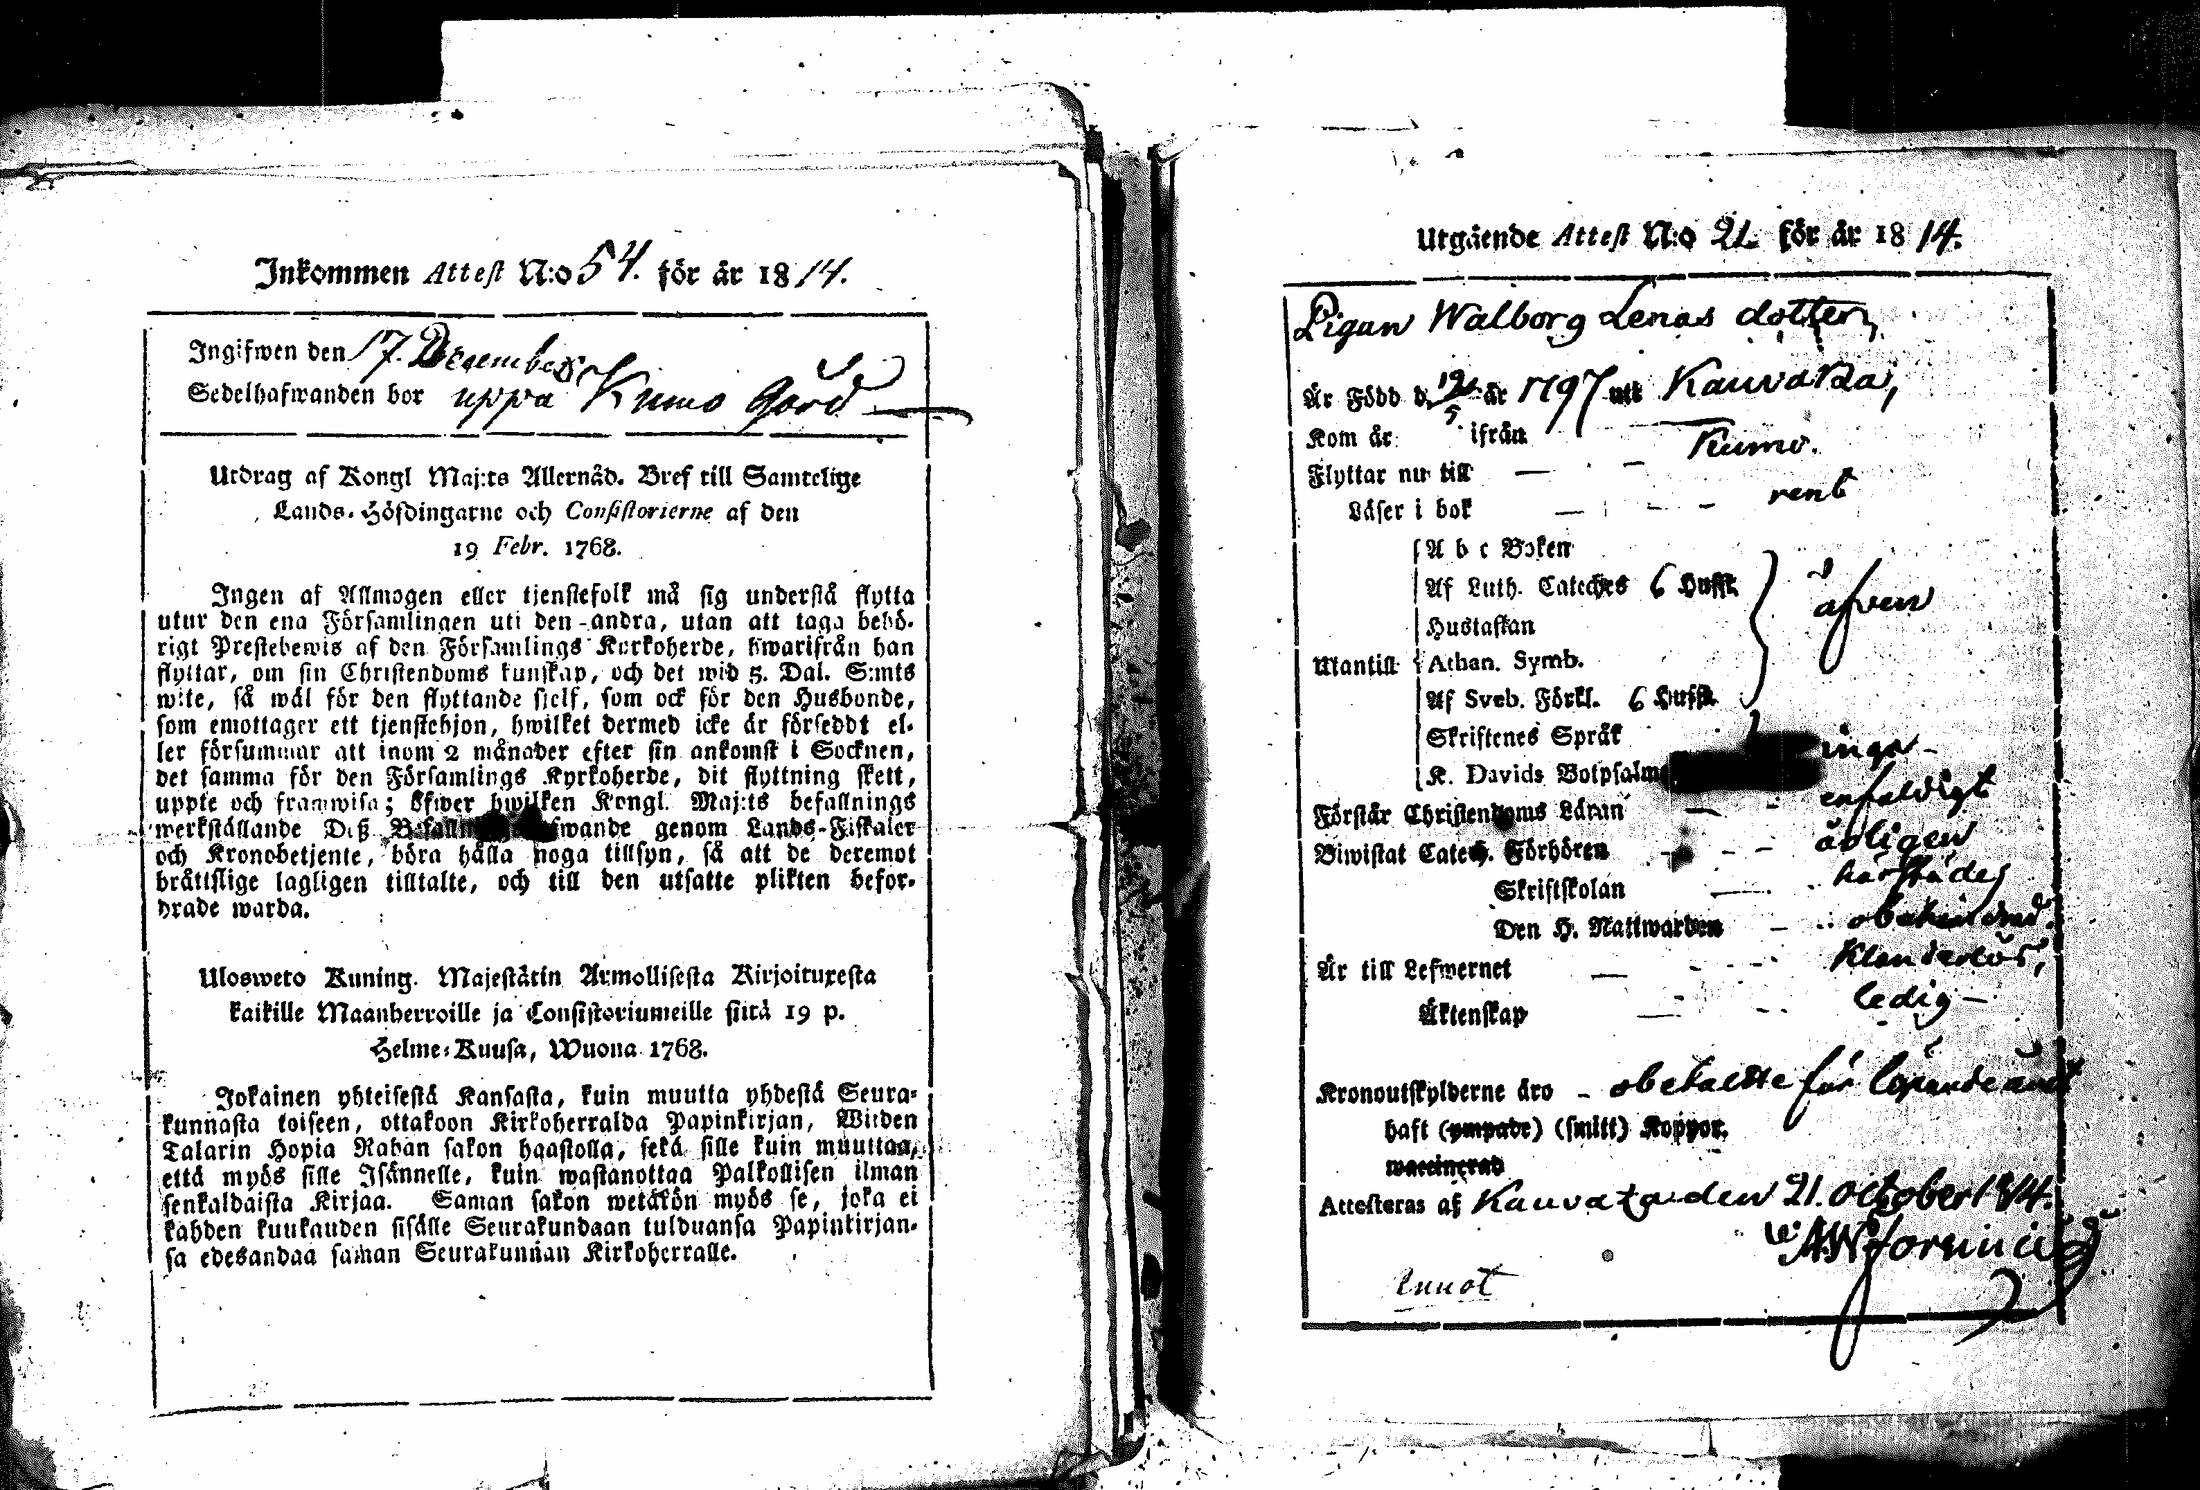 Inkommen Attest N:o 54. för år 1814.
Ingifwen den 17. December
Sedelhafwanden bor uppå Kumo Gård
Utdrag af Kongl Maj:ts Allernåd. Bref till Samtelige
Lands-Höfdingarne och Consistorierne af den
19 Febr. 1768.
Ingen af Allmogen eller tjenstefolk må sig understå flytta
utur den ena Församlingen uti den andra, utan att taga behö-
rigt Prestebewis af den Församlings Kyrkoherde, hwarifrån han
flyttar, om sin Christendoms kunskap, och det wid 5. Dal. S:mts
wite, så wäl för den flyttande sielf, som ock för den Husbonde,
som emottager ett tjenstehjon, hwilket dermed icke är försedt el-
ler försummar att inom 2 månader efter sin ankomst i Socknen,
det samma för den Församlings Kyrkoherde, dit flyttning skett,
uppte och framwisa; öfwer hwilken Kongl. Maj:ts befallnings
werkställande Deß wande genom Lands-Fiskaler
och Kronobetjente, böra hålla noga tillsyn, så att de deremot
bråttslige lagligen tilltalte, och till den utsatte plikten befor-
drade warda.
Ulosweto Kuning. Majestätin Armollisesta Kirjoituxesta
kaikille Maanherroille ja Consistoriumeille siitä 19 p.
Helme-Kuusa, Wuona 1768.
Jokainen yhteisestä Kansasta, kuin muutta yhdestä Seura-
kunnasta toiseen, ottakoon Kirkoherralda Papinkirjan, Wiiden
Talarin Hopia Rahan sakon haastolla, sekä sille kuin muuttaa,
että myös sille Isännelle, kuin wastanottaa Palkollisen ilman
senkaldaista Kirjaa. Saman sakon wetäkön myös se, joka ei
kahden kuukauden sisälle Seurakundaan tulduansa Papinkirjan-
sa edesandaa saman Seurakunnan Kirkoherralle.
Utgående Attest N:o 21. för år 1814.
Pigan Walborg Lenas dotter,
Är Född d. 19/5 år 1797 uti Kauvatsa,
Kom år ifrån
Flyttar nu till Kumo.
Läser i bok rent
A b c Boken
Af Luth. Cateches 6 Hufst.
Hustaflan
Utantill Athan. Symb. äfven
Af Sveb. Förkl. 6 Hufst.
Skriftenes Språk
K. Davids Botpsalm inga
Förstår Christendoms Läran enfaldigt
Biwistat Catech. Förhören årligen
Skriftskolan härstädes
Den H. Nattwarden obehindrad.
Är till Lefwernet klanderlös,
Äktenskap ledig
Kronoutskylderne äro obetalte för löpande året
haft (ympade) (smitt) Koppor.
waccinerad
Attesteras af Kauvatsa den 21. October 1814.